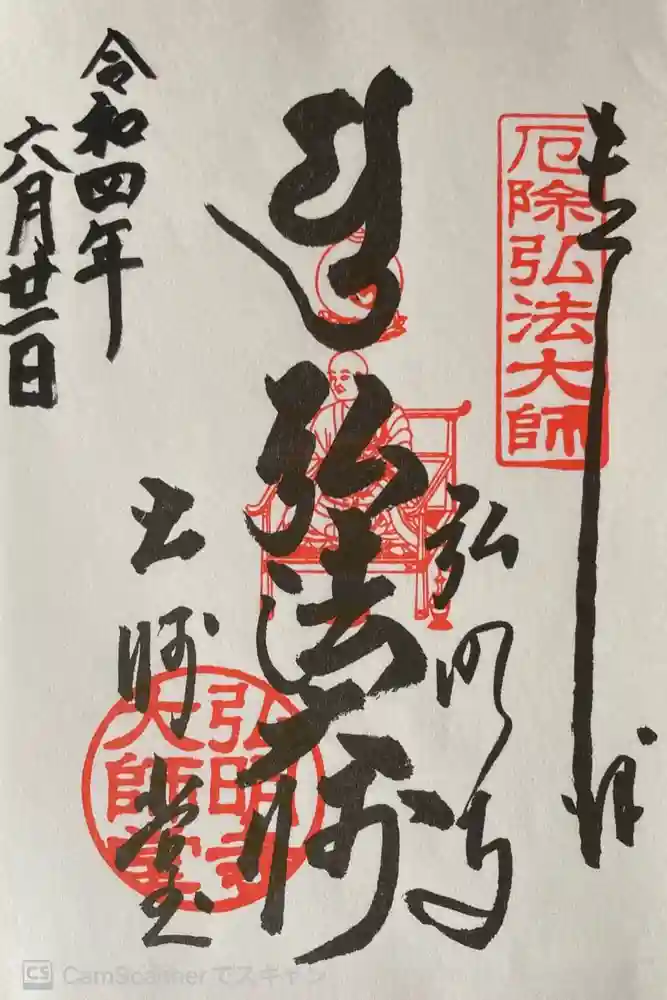 奉拝
厄除弘法大師
弘明寺
弘法大師
大師堂
弘明寺
大師堂
令和四年
六月廿一日
CS CamScanner でスキャン